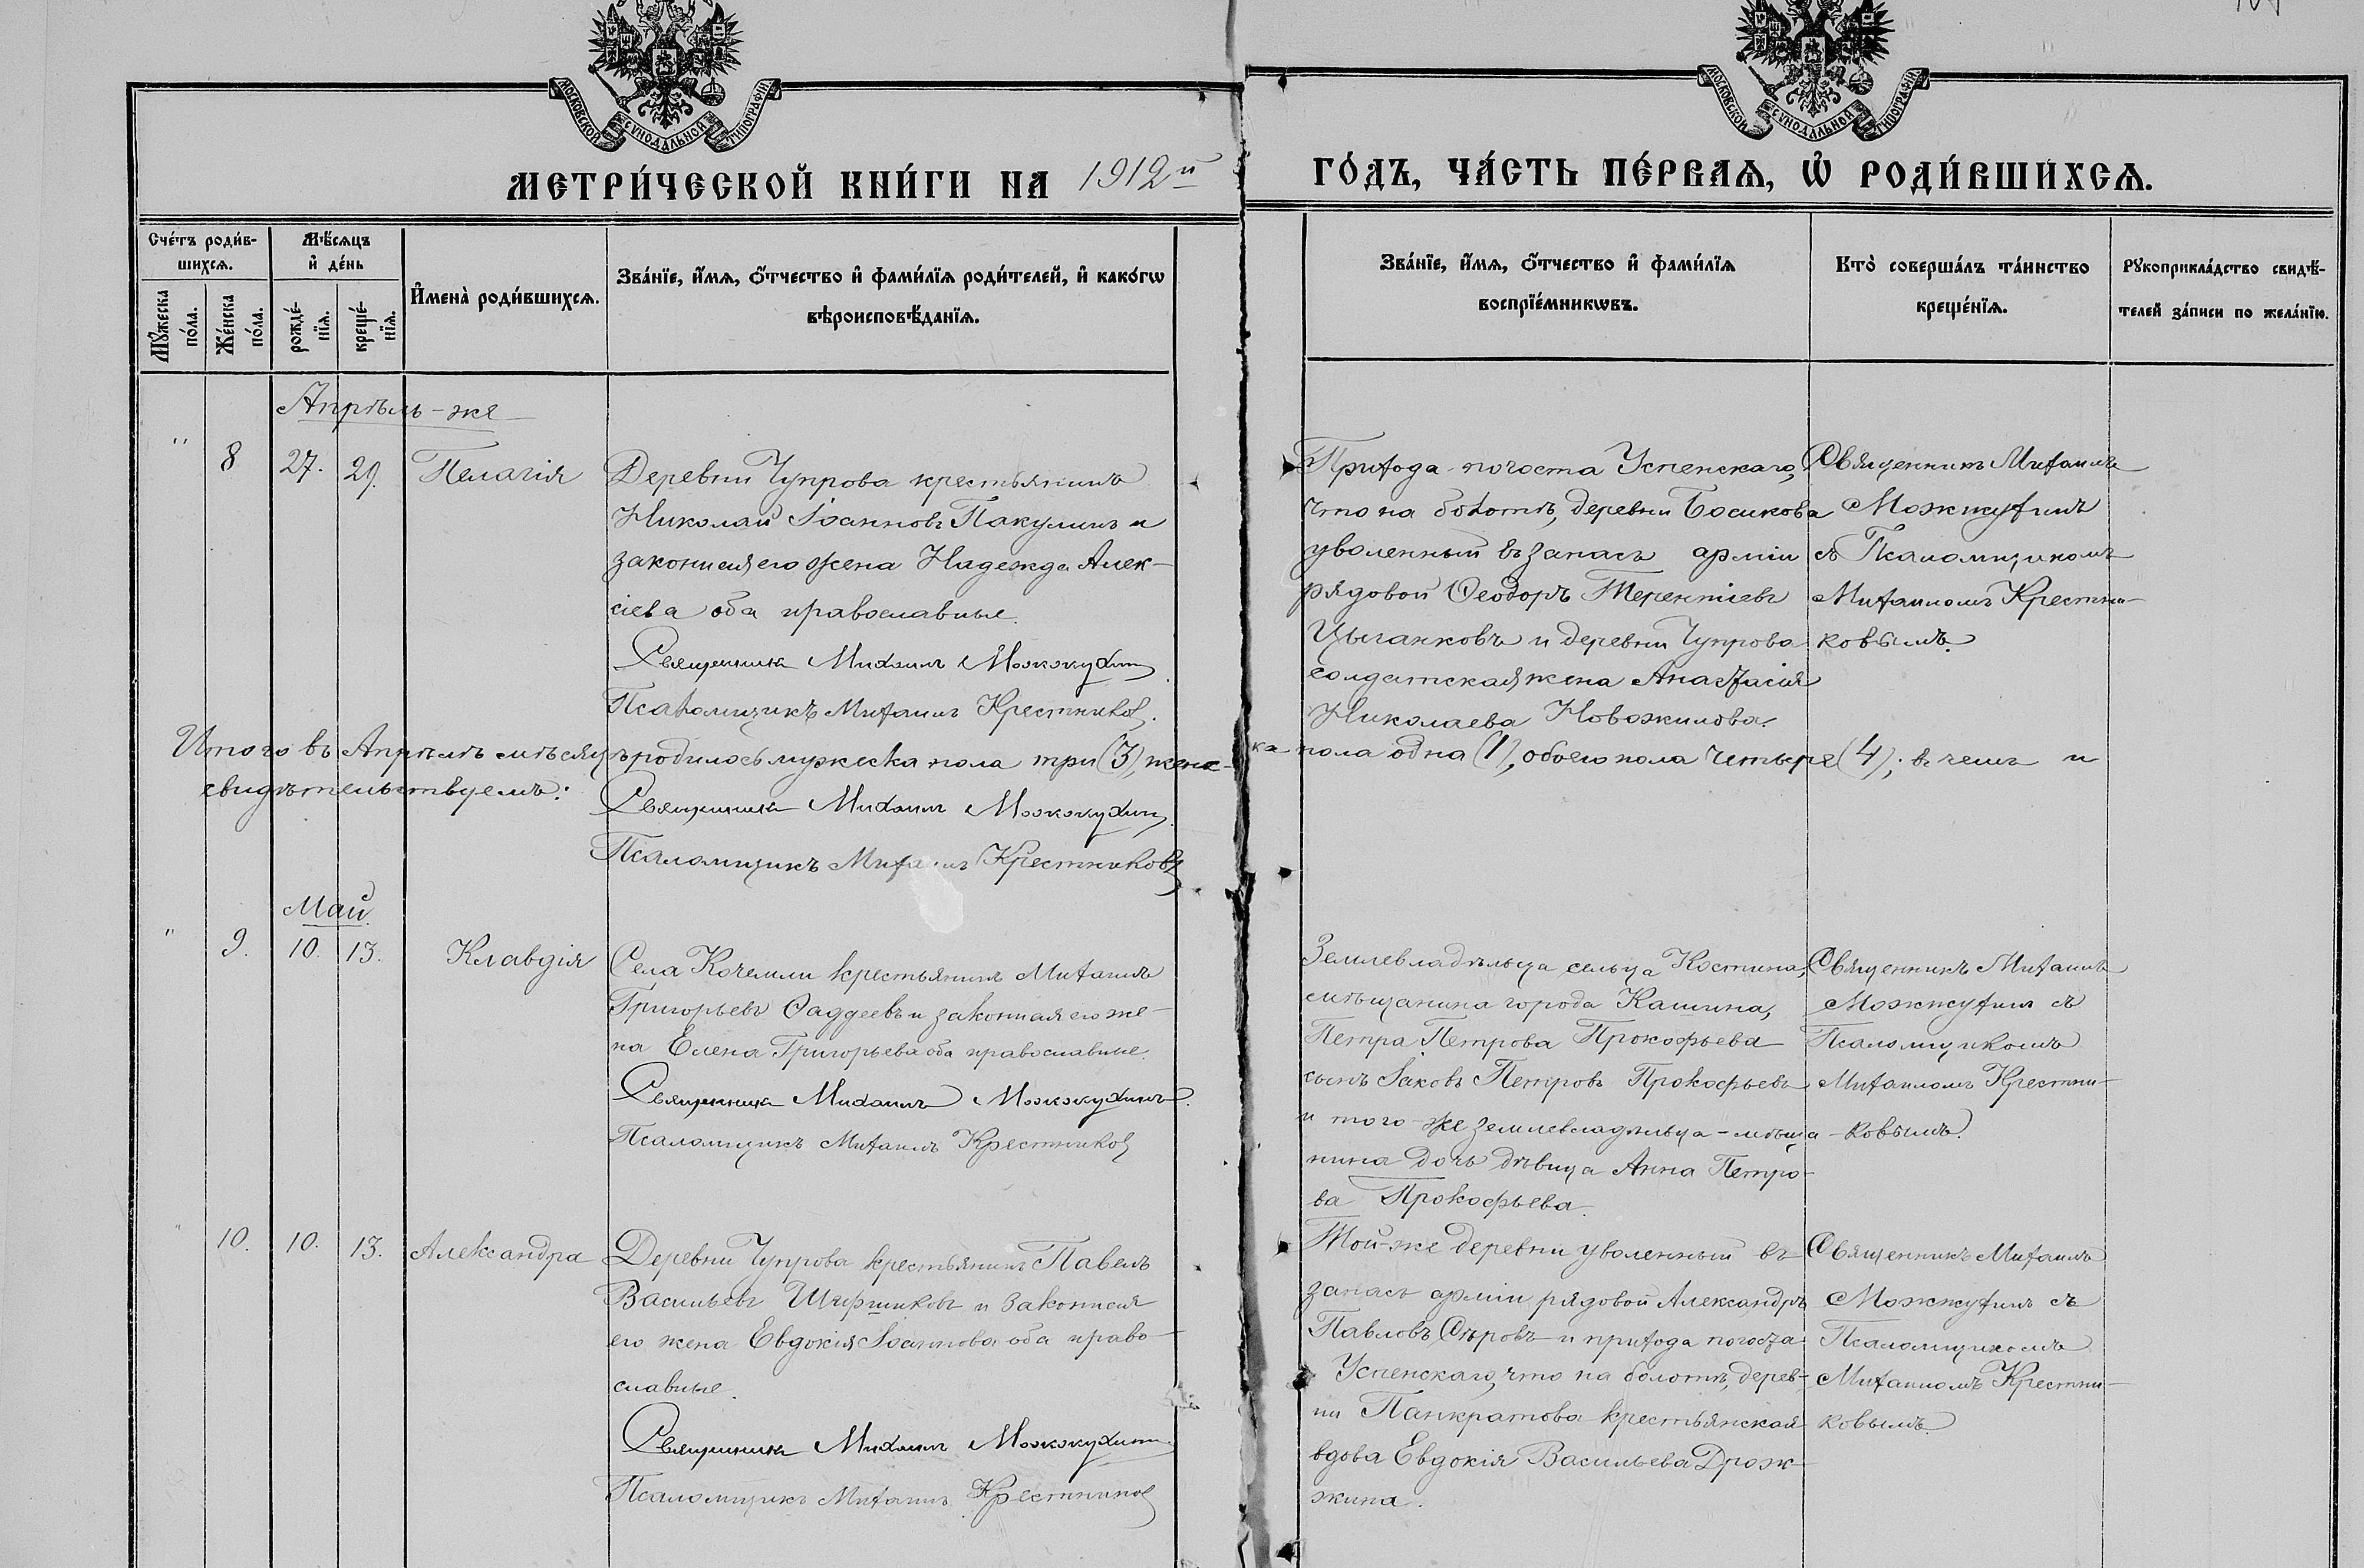 МОСКОВСКОЙ СУНОДАЛЬНОЙ ТИПОГРАФІИ
МОСКОВСКОЙ СУНОДАЛЬНОЙ ТИПОГРАФІИ
МЕТРИ́ЧЕСКОЙ КНИ́ГИ НА 1912й
ГО́ДЪ, ЧА́СТЬ ПЕ́РВАѦ, Ѡ҆ РОДИ́ВШИХСѦ.
Сче́тъ роди́в-
шихсѧ.
Мꙋ́жеска по́ла.
Же́нска по́ла.
Мѣ́сѧцъ
и҆ де́нь
рожде́-
нїѧ.
креще́-
нїѧ.
И҆мена̀ роди́вшихсѧ.
Зва́нїе, и҆́мѧ, ѻ҆́тчество и҆ фами́лїѧ роди́телей, и҆ како́гѡ
вѣроисповѣ́данїѧ.
Зва́нїе, и҆́мѧ, ѻ҆́тчество и҆ фами́лїѧ
воспрїе́мникѡвъ.
Кто̀ соверша́лъ та́инство
креще́нїѧ.
Рꙋкоприкла́дство свидѣ́-
телей за́писи по жела́нїю.
Апрѣль-же
" 8 27. 29. Пелагія
Деревни Чупрова крестьянинъ
Николай Іоанновъ Пакулинъ и
законная его жена Надежда Алек-
сіева оба православные.
Священникъ Михаилъ Можжухин
Псаломщикъ Михаилъ Крестниковъ.
Прихода погоста Успенскаго,
что на болотѣ, деревни Босикова
уволенный въ запасъ арміи
рядовой Ѳеодоръ Терентіевъ
Цыганковъ и деревни Чупрова
солдатская жена Анастасія
Николаева Новожилова.
Священникъ Михаилъ
Можжухинъ
съ Псаломщикомъ
Михаиломъ Крестни-
ковымъ.
Итого въ Апрѣлѣ мѣсяцѣ родилось мужеска пола три (3), женс-
ка пола одна (1), обоего пола четыре (4); въ чемъ и
свидѣтельствуемъ:
Священникъ Михаилъ Можжухин
Псаломщикъ Михаилъ Крестниковъ
Май.
" 9. 10. 13. Клавдія
Села Кочемли крестьянинъ Михаилъ
Григорьевъ Ѳаддеевъ и законная его же-
на Елена Григорьева оба православные.
Священникъ Михаилъ Можжухинъ.
Псаломщикъ Михаилъ Крестниковъ
Землевладѣльца сельца Костина,
мѣщанина города Кашина,
Петра Петрова Прокофьева
сынъ Іаковъ Петровъ Прокофьевъ
и того-же землевладѣльца-мѣща-
нина дочь дѣвица Анна Петро-
ва Прокофьева.
Священникъ Михаилъ
Можжухинъ съ
Псаломщикомъ
Михаиломъ Крестни-
ковымъ.
" 10. 10. 13. Александра
Деревни Чупрова крестьянинъ Павелъ
Васильевъ Ширшиковъ и законная
его жена Евдокія Іоаннова оба право-
славные.
Священникъ Михаилъ Можжухинъ
Псаломщикъ Михаилъ Крестниковъ
Той-же деревни уволенный въ
запасъ арміи рядовой Александръ
Павловъ Сѣровъ и прихода погоста
Успенскаго, что на болотѣ, дерев-
ни Панкратова крестьянская
вдова Евдокія Васильева Дрож-
жина.
Священникъ Михаилъ
Можжухинъ съ
Псаломщикомъ
Михаиломъ Крестни-
ковымъ.